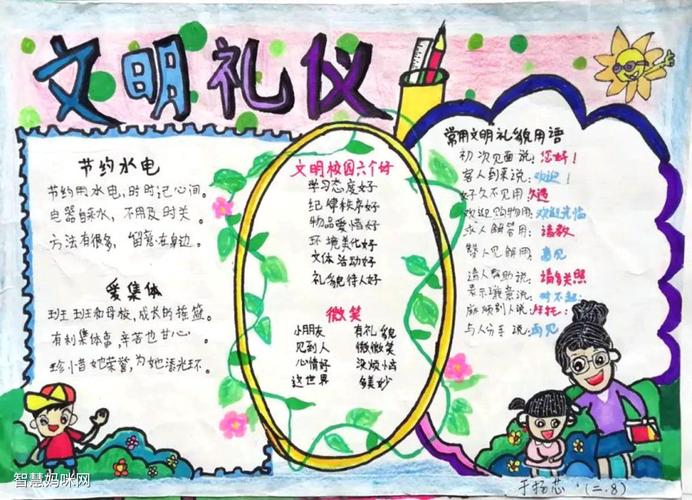 文明礼仪
节约水电
节约用水电,时时记心间。
电器自来水,不用及时关。
方法有很多,留意在身边。
爱集体
班班班和母校,成长的摇篮。
有利集体事,辛苦也甘心。
珍惜她荣誉,为她添光环。
文明校园六个好
学习态度好
纪律秩序好
物品爱惜好
环境美化好
文体活动好
礼貌待人好
微笑
小朋友 有礼貌
见到人 微微笑
心情好 没烦恼
这世界 多美妙
常用文明礼貌用语
初次见面说:您好!
客人到来说:欢迎!
好久不见用久违
欢迎购物用:欢迎光临
求人解答用:请教
请人帮助说:请多关照
表示歉意说:对不起
麻烦别人说:拜托
与人分手说:再见
于杨芯·(二.8)
智慧妈咪网